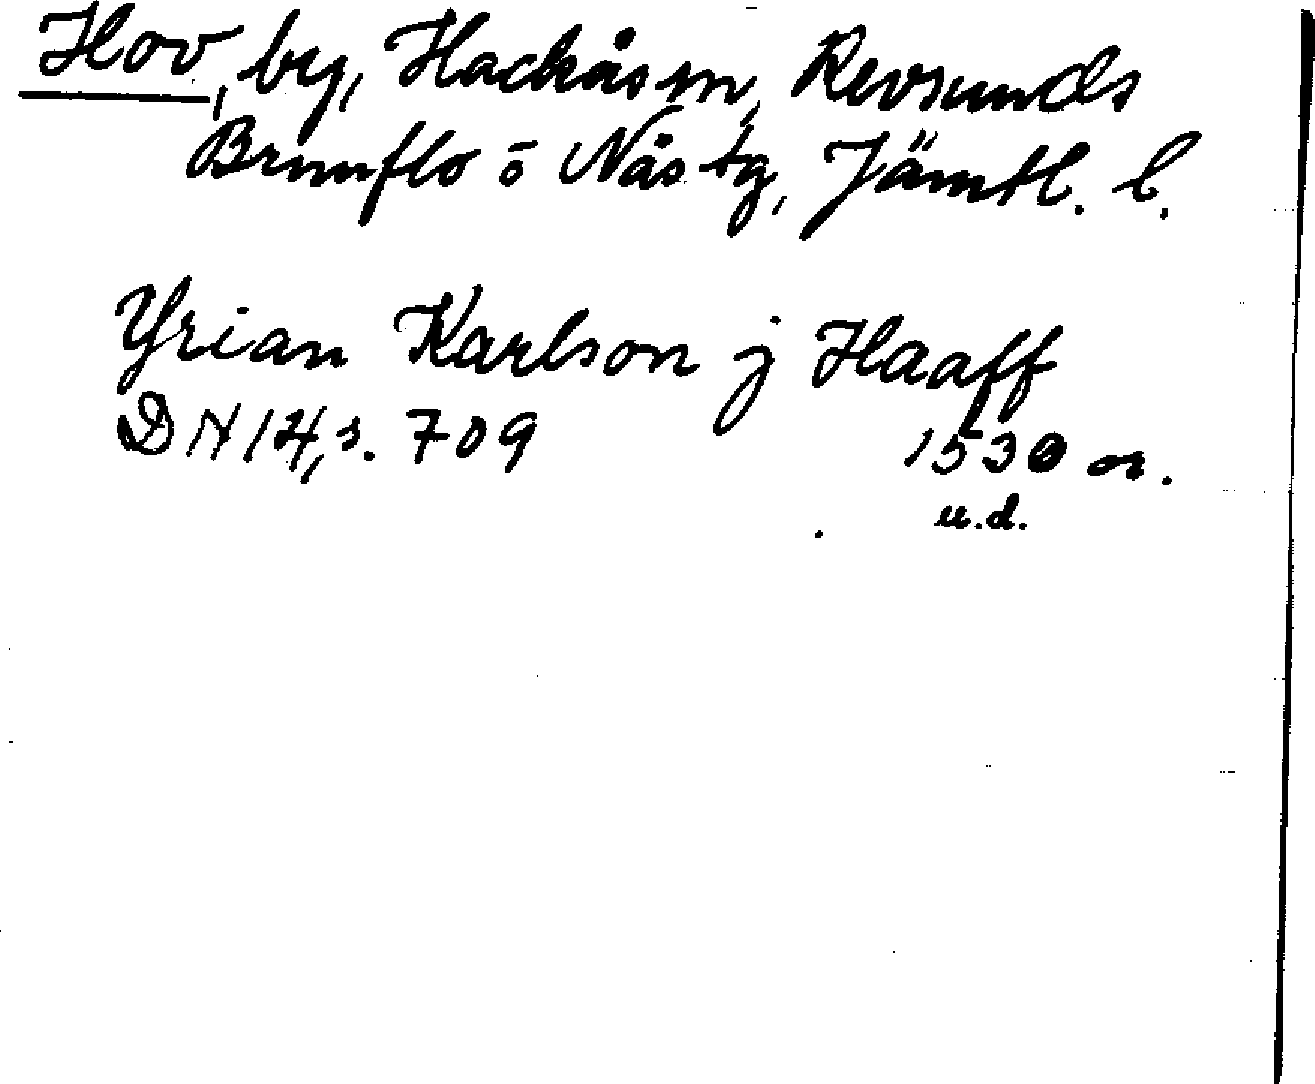 Hov, by, Hackås sn, Revsunds
Brunflo o Näs tg, Jämtl. l.
Yrian Karlson j Haaff
DN 14, s. 709 1530 or.
u.d.